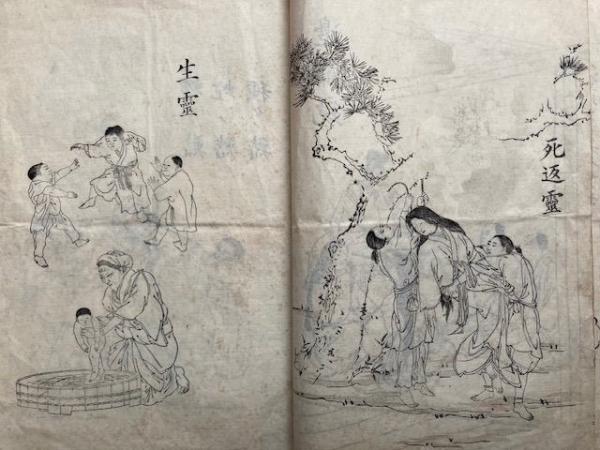 死返靈
生靈